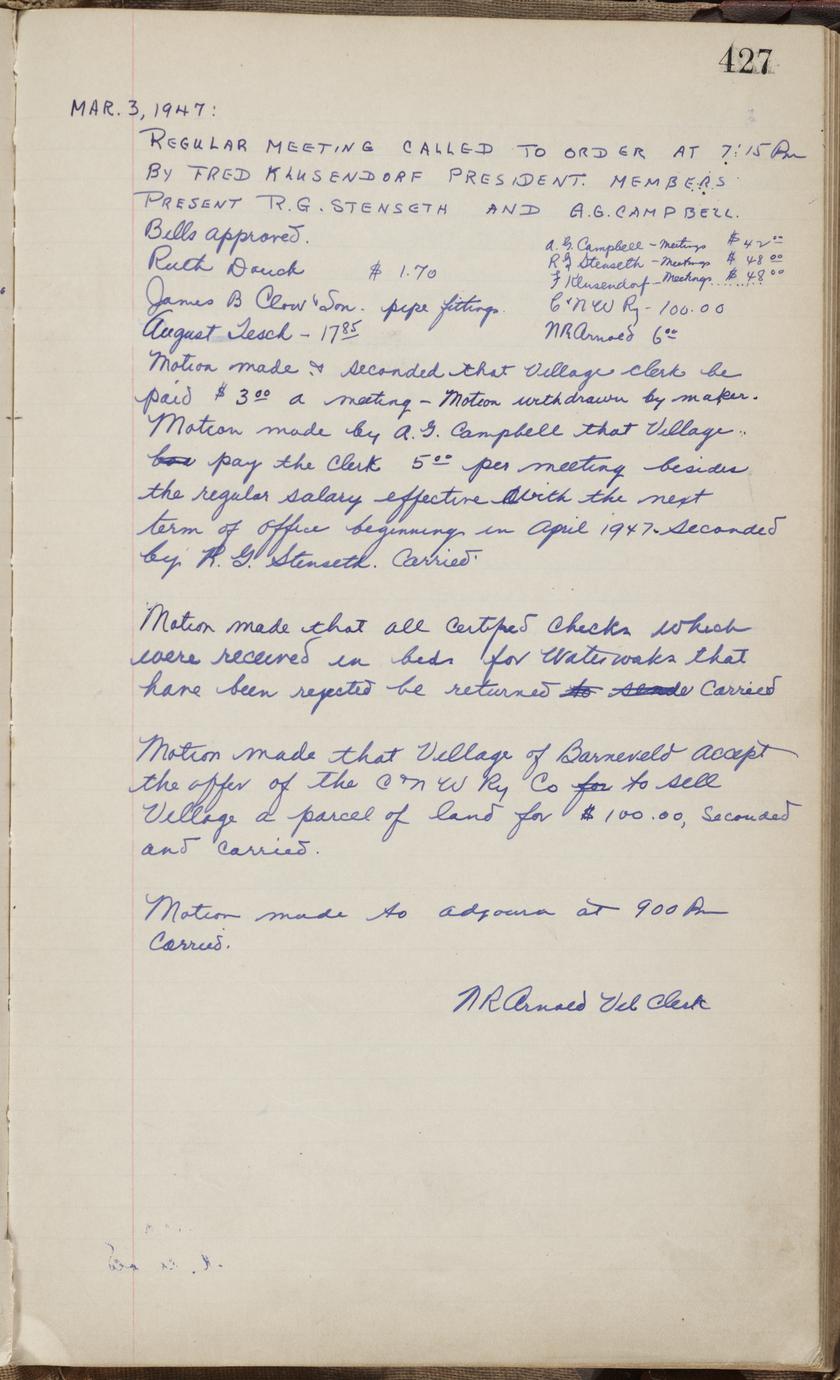 427
MAR. 3, 1947:
REGULAR MEETING CALLED TO ORDER AT 7:15 Pm
BY FRED KLUSENDORF PRESIDENT. MEMBERS
PRESENT R.G. STENSETH AND A.G. CAMPBELL.
Bills approved.
Ruth Douck $ 1.70
James B Clow & Son. pipe fittings.
August Tesch - 17 85
A. G. Campbell - Meetings $ 42 00
R G Stenseth - Meetings $ 48 00
F Klusendorf - Meetings $ 48 00
C & N W Ry - 100.00
NR Arnold 6 00
Motion made & seconded that Village clerk be
paid $ 3 00 a meeting - Motion withdrawn by maker.
Motion made by A. G. Campbell that Village
pay the Clerk 5 00 per meeting besides
the regular salary effective with the next
term of office beginning in April 1947. Seconded
by R. G. Stenseth. Carried

Motion made that all Certified Checks which
were received in beds for Waterwoks that
have been rejected be returned to Carried

Motion made that Village of Barneveld accept
the offer of the C & N W Ry Co for to sell
Village a parcel of land for $ 100.00, Seconded
and carried.

Motion made to adjourn at 900 Pm
Carried.

NR Arnold Vil Clerk